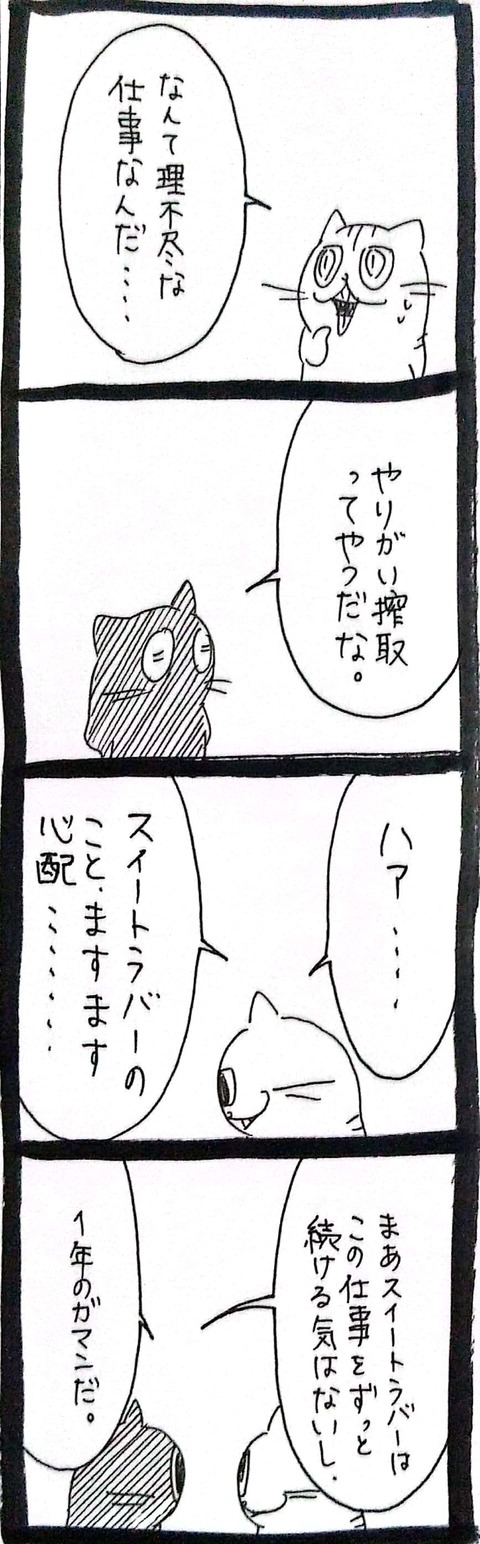 なんて理不尽な
仕事なんだ‥‥
やりがい搾取
ってやつだな。
ハァ‥‥
スイートラバーの
こと、ますます
心配‥‥‥‥
まあスイートラバーは
この仕事をずっと
続ける気はないし、
1年のガマンだ。